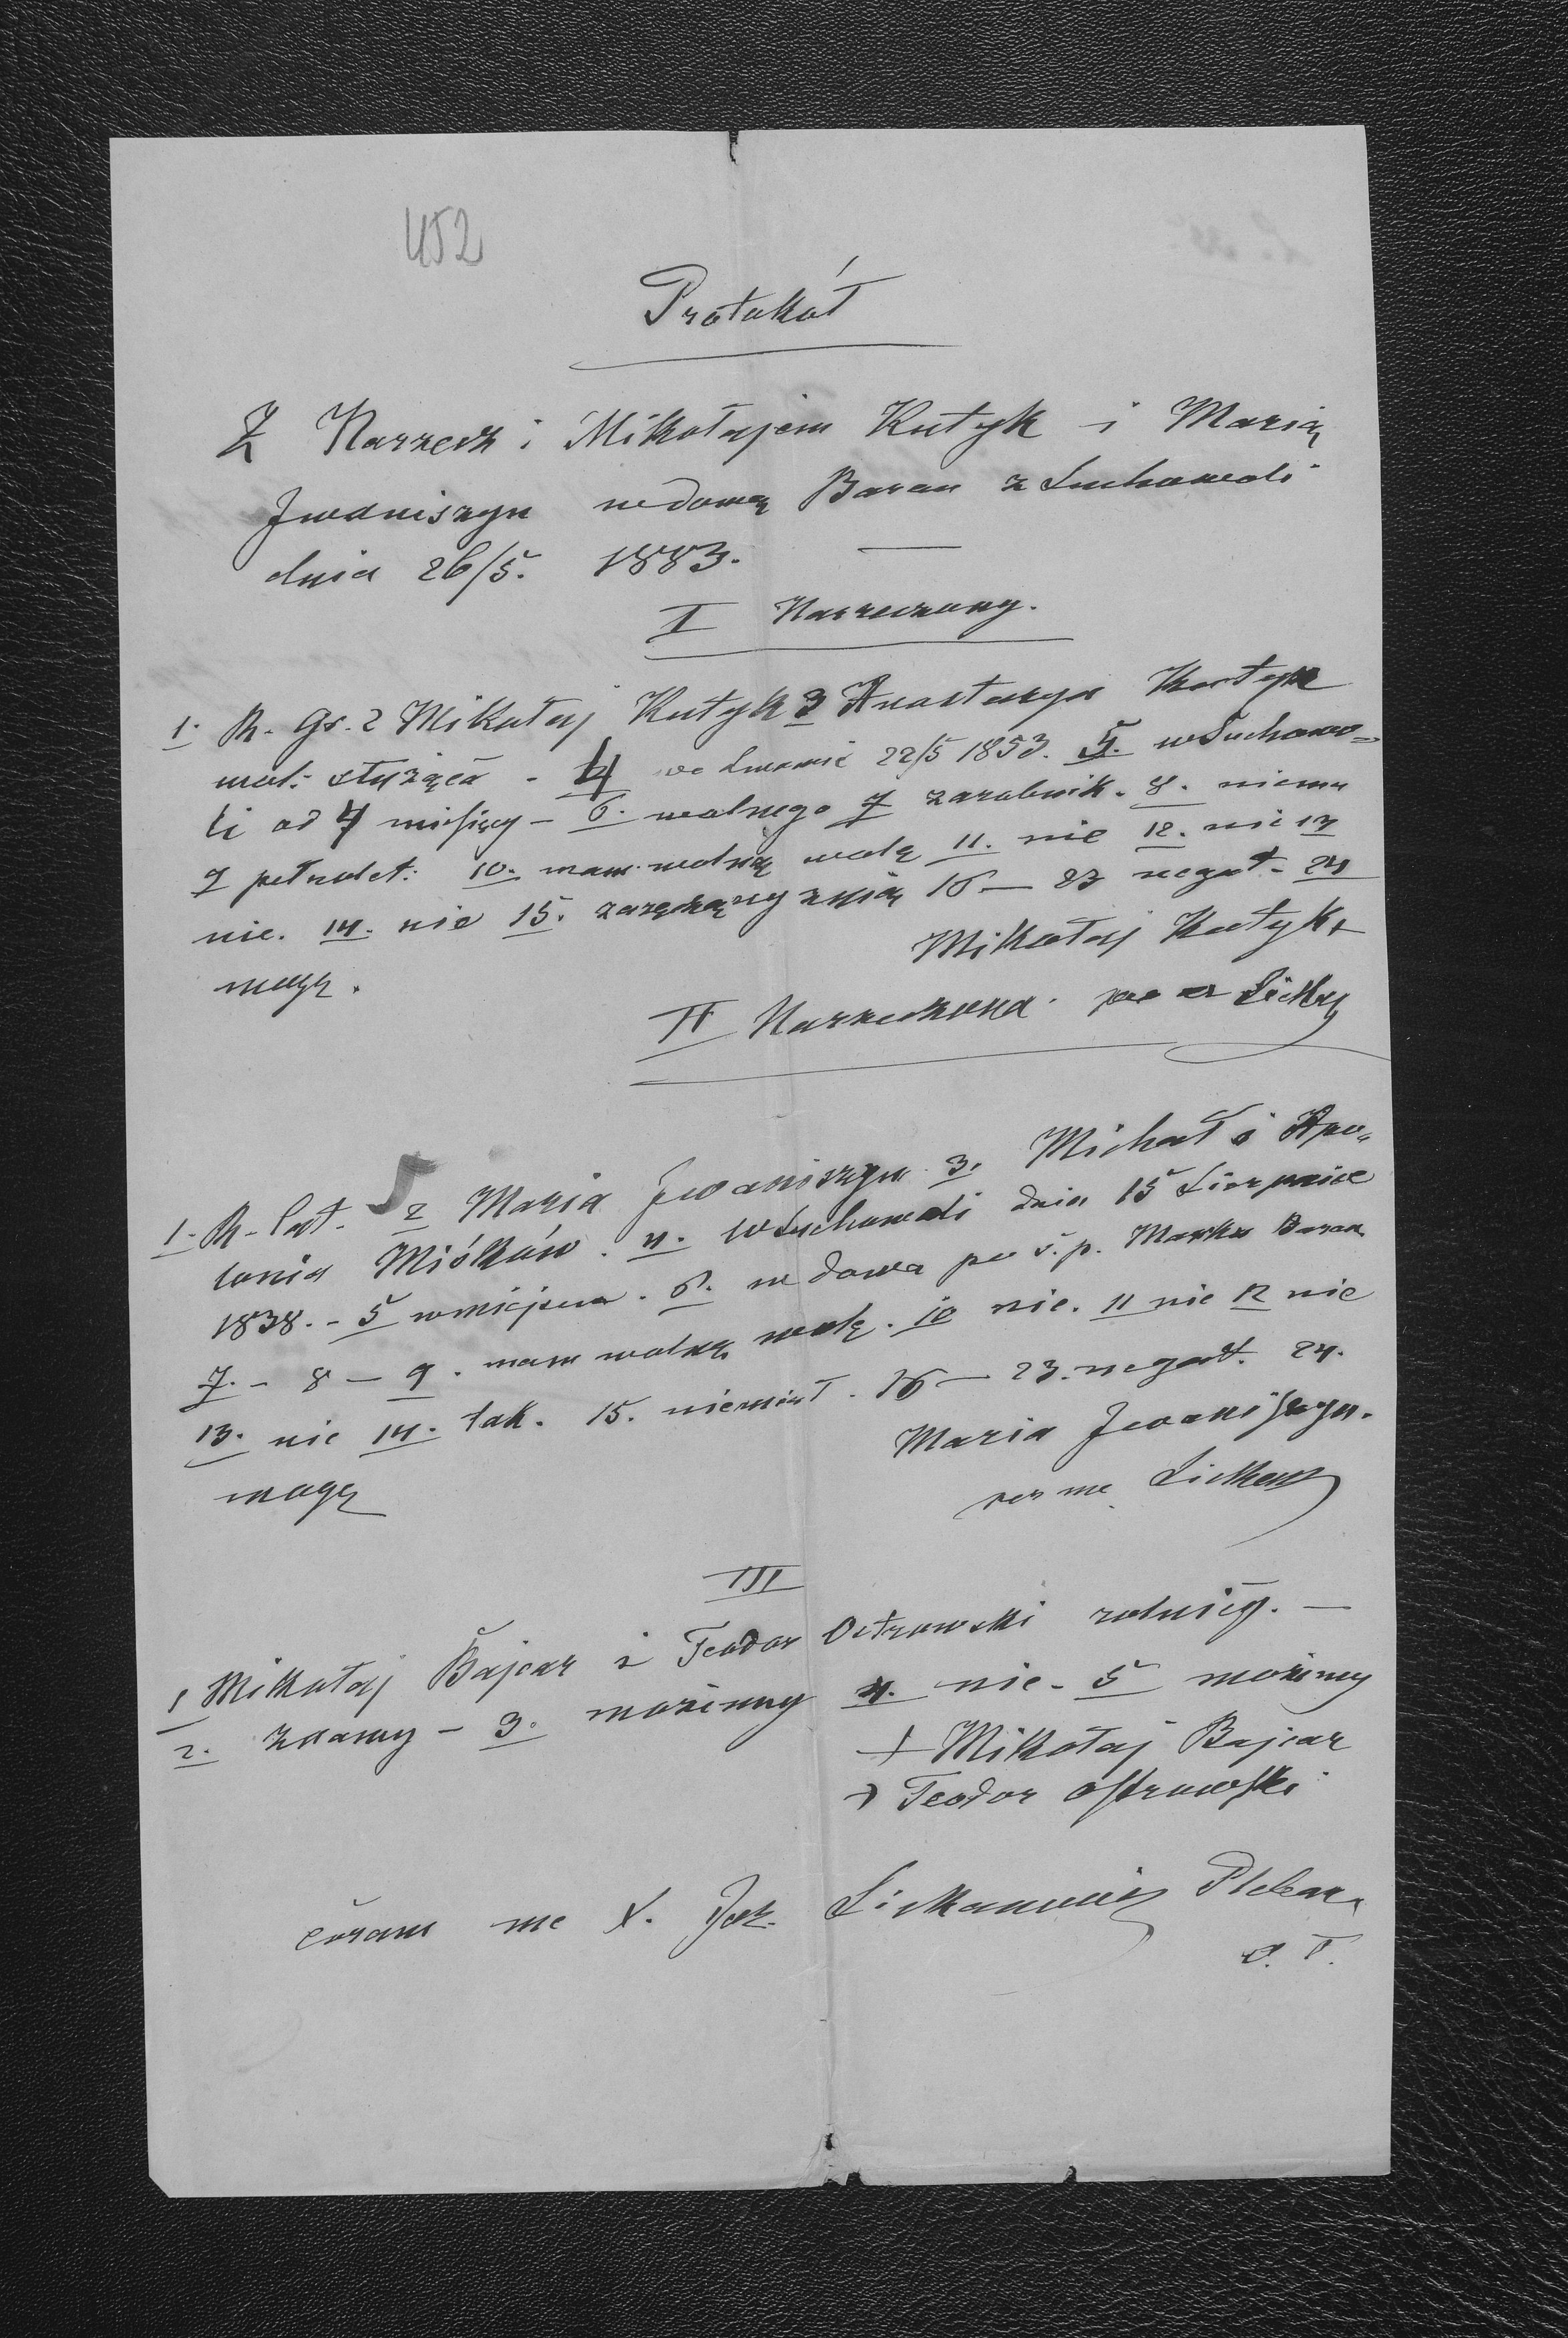 452
Protokół
Z Narzecz: Mikołajem Kutyk i Marią
Iwaniszyn wdową Baran z Suchowoli
dnia 26/5. 1883.
I Narzeczony.
1. R. Gr. 2 Mikołaj Kutyk 3 Anastazya Kutyk
mat: służąca - 4 we Lwowie 22/5 1853. 5. w Suchowo=
li od 4 miesięcy - 6. wolnego 7 zarobnik. 8. niema
9 pełnolet: 10. mam wolną wolę 11. nie 12. nie 13
nie. 14. nie 15. zaręczony z nią 16 — 23 negat. 24
mogę.
Mikołaj Kutyk +
II Narzeczona.
1. R. Lat. 2 Maria Iwaniszyn 3. Michał i Apo=
lonia Miśków. 4. w Suchowoli dnia 15 Sierpnia
1838. - 5 w miejscu. 6. wdowa po ś. p. Marku Baran
7. - 8 - 9. mam wolną wolę. 10 nie. 11 nie 12 nie
13. nie 14. tak. 15. 16 — 23. negat. 24.
mogę
Maria Iwaniszyn.
III
1 Mikołaj Bajcar i Teodor Ostrowski rolnicy. —
2. znamy - 3. możemy 4. nie - 5 możemy
+ Mikołaj Bajcar
+ Teodor Ostrowski
coram me X. Pleban